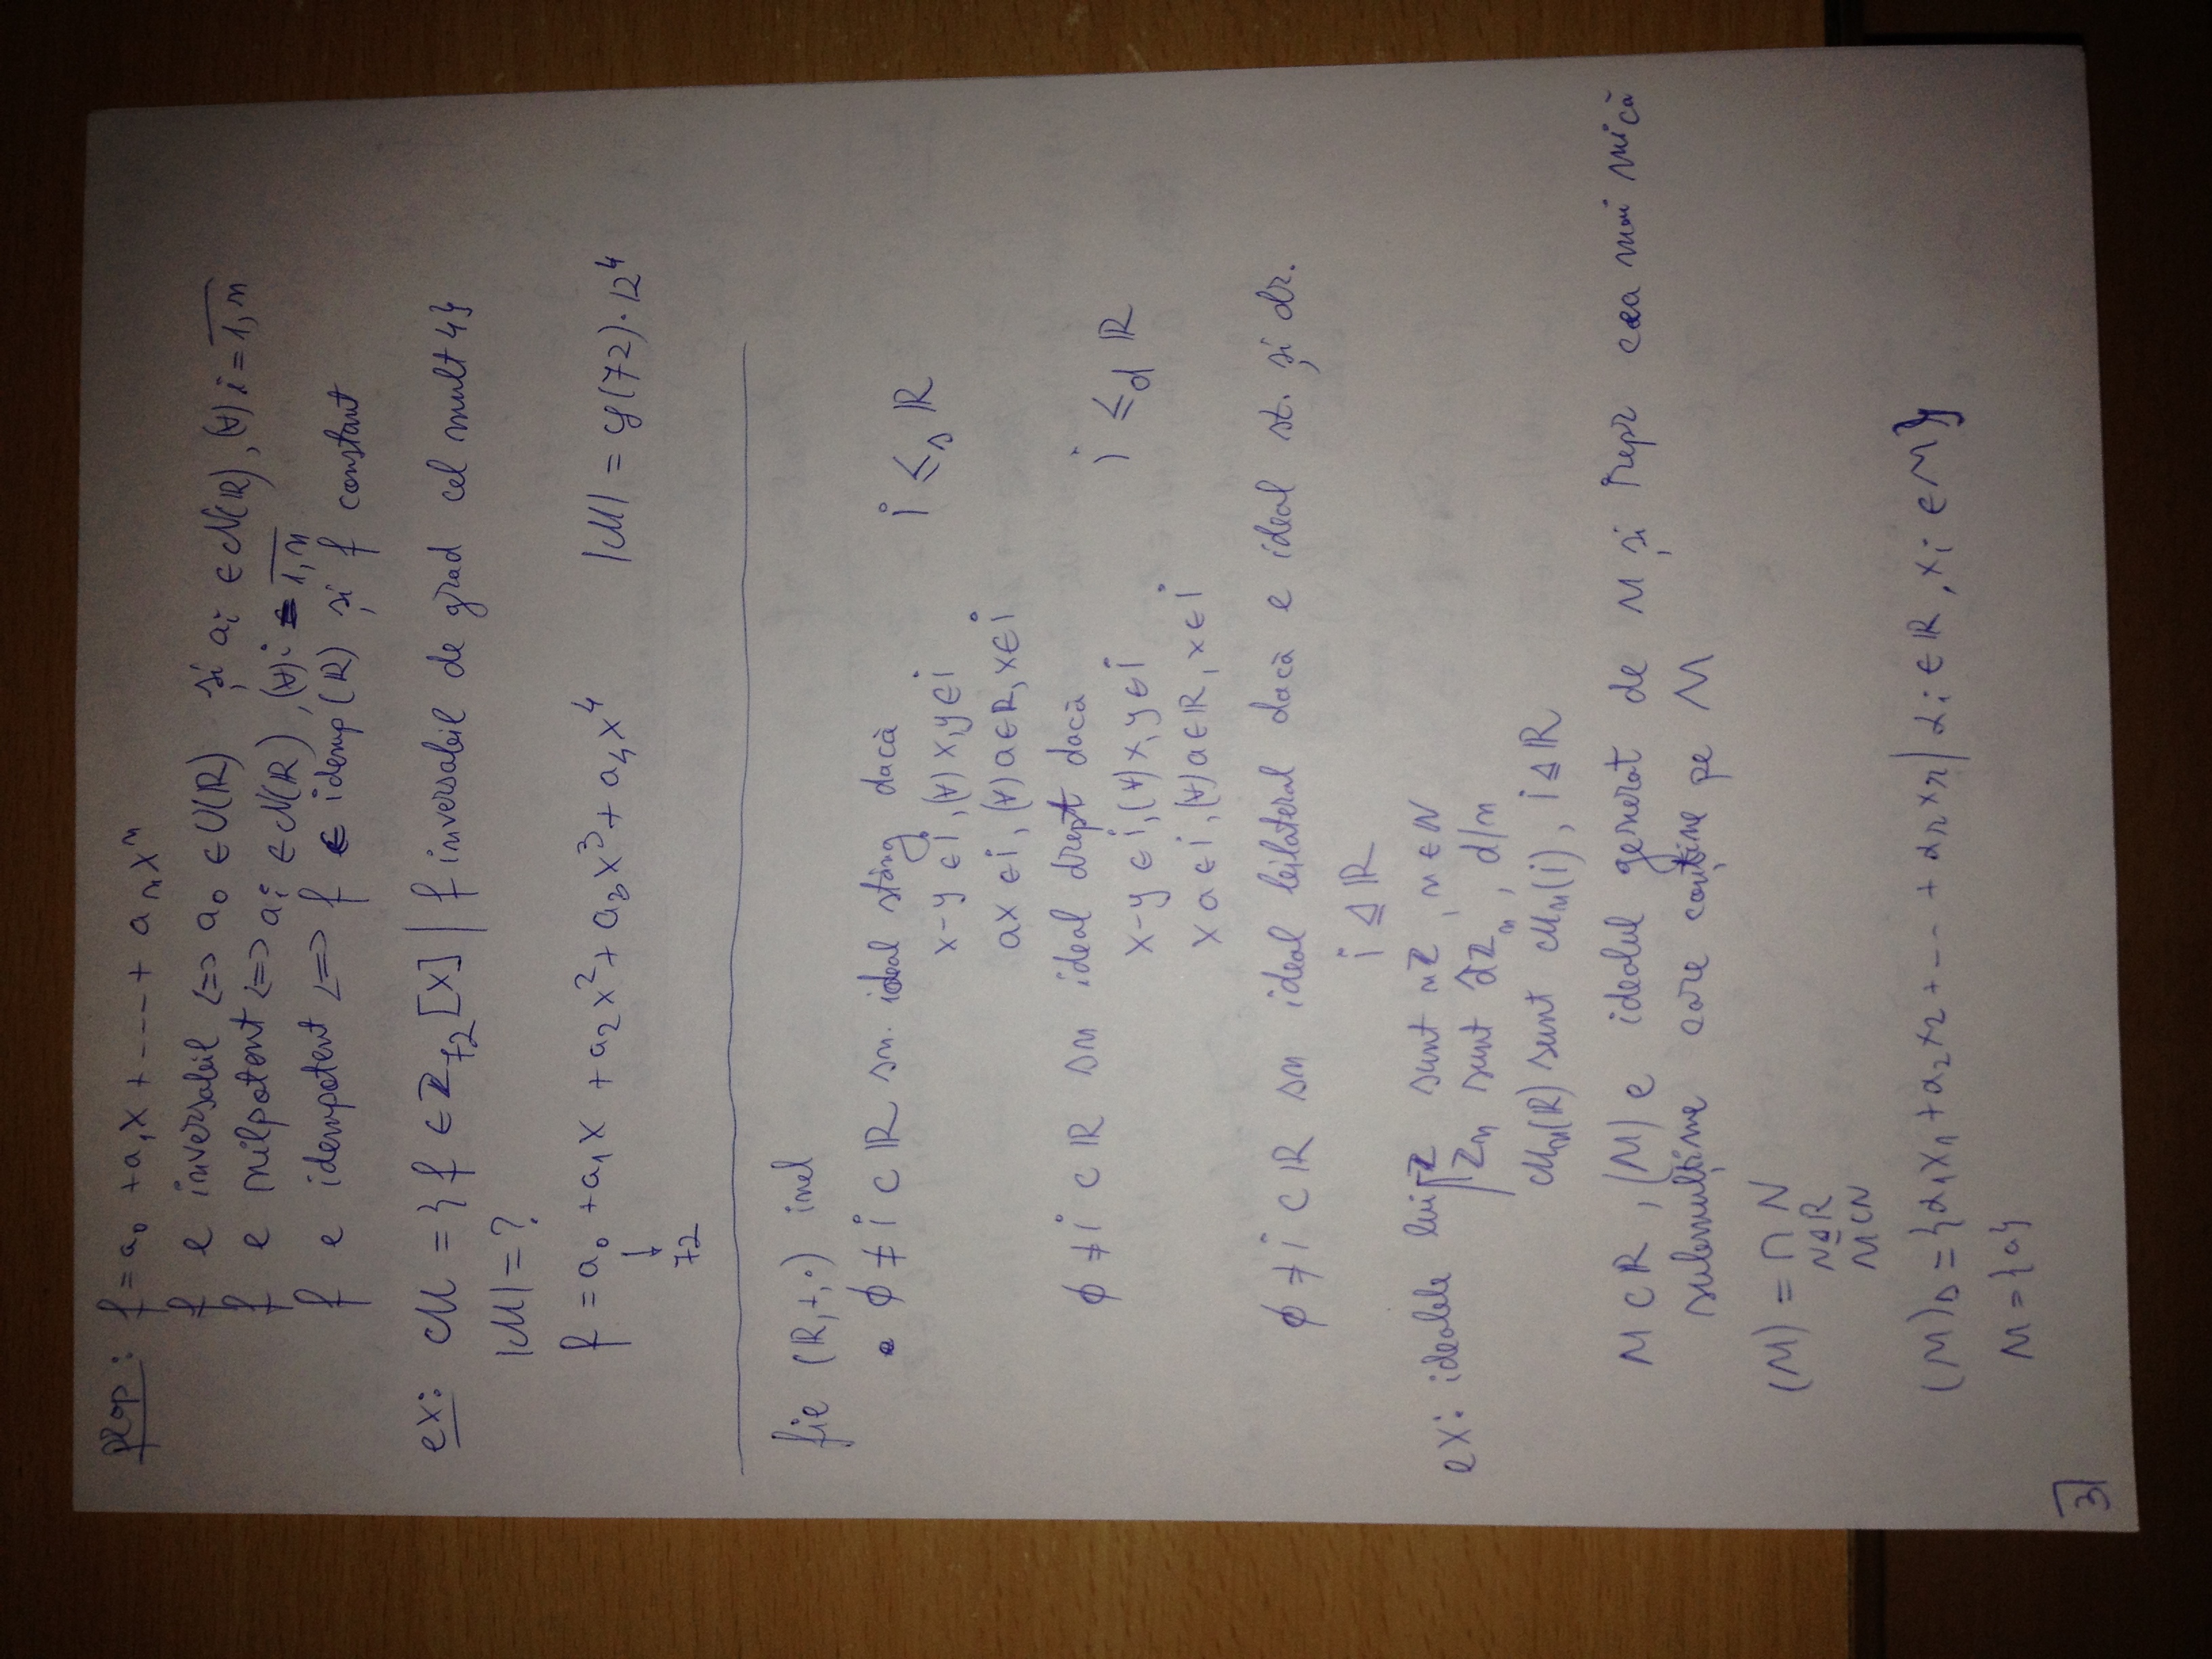 prop: f = a₀ + a₁x + ---- + aₙxⁿ
f e inversabil <=> a₀ ∈ U(R) și aᵢ ∈ N(R), (∀) i = 1,n
f e nilpotent <=> aᵢ ∈ N(R), (∀) i = 1,n
f e idempotent <=> f ∈ idemp(R) și f constant
ex: M = {f ∈ Z₇₂[X] | f inversabil de grad cel mult 4}
|M| = ?
f = a₀ + a₁x + a₂x² + a₃x³ + a₄x⁴ |M| = φ(72)·12⁴
↓
72
fie (R,+,·) inel
• ∅ ≠ i ⊂ R sn. ideal stâng dacă i ≤ₛ R
x-y ∈ i, (∀) x,y ∈ i
ax ∈ i, (∀) a ∈ R, x ∈ i
∅ ≠ i ⊂ R sn ideal drept dacă i ≤d R
x-y ∈ i, (∀) x,y ∈ i
xa ∈ i, (∀) a ∈ R, x ∈ i
∅ ≠ i ⊂ R sn ideal bilateral dacă e ideal st. și dr.
i ⊴ R
ex: idealele lui Z sunt nZ, n ∈ N
Zₙ sunt d̂Zₙ, d/n
Mₙ(R) sunt Mₙ(i), i ⊴ R
M ⊂ R, (M) e idealul generat de M și repr cea mai mică
submulțime care conține pe M
(M) = ∩ N
N ⊴ R
M ⊂ N
(M)ₛ = {α₁x₁ + α₂x₂ + --- + αₙxₙ | αᵢ ∈ R, xᵢ ∈ M}
M = {a}
3